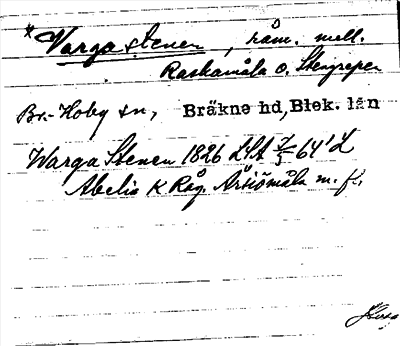 *Varga stenen, råm. mell.
Raskamåla o. Stengrepen
Br.-Hoby sn, Bräkne hd, Blek. län
Warga Stenen 1826 LSA 7/5 64' L
Abelis K Råg. Årsiömåla m. fl.